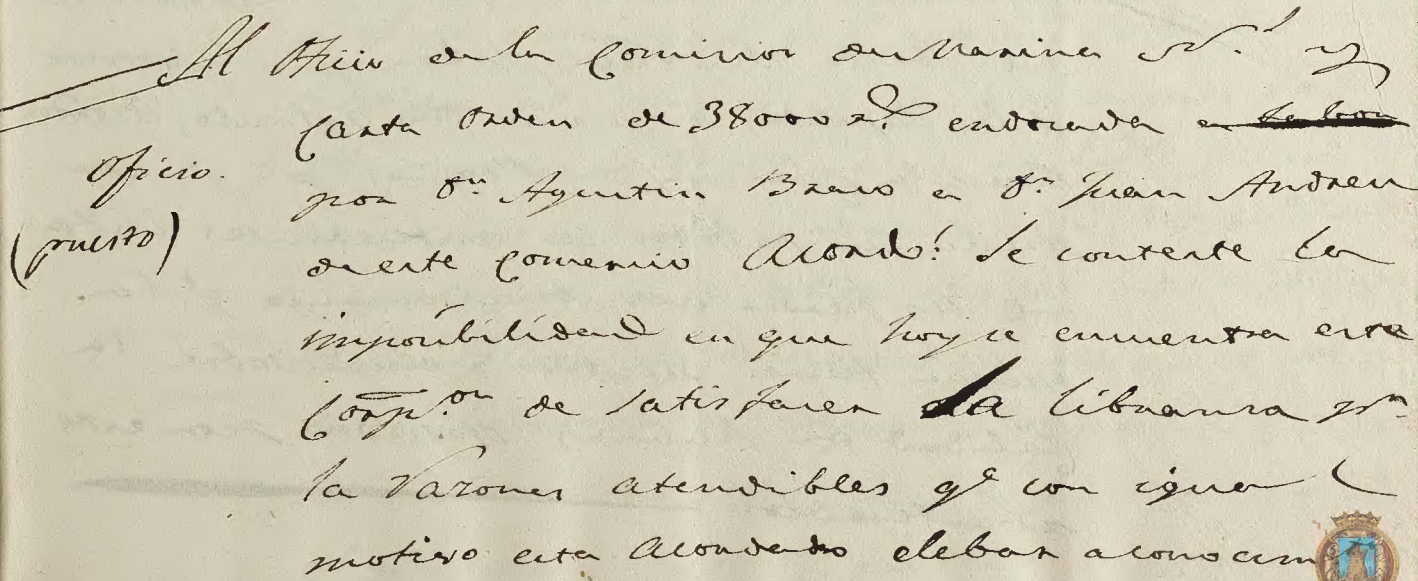 Al Oficio de la Comision de Marina sre. una
Carta Orden de 38000 rs. endosada en
Oficio.
por Dn. Agustin Bravo en Dn. Juan Andreu
(puesto)
de este Comercio Acordo: Se conteste la
imposibilidad en que hoy se encuentra esta
Corp.on de satisfacer la libranza pr.
la razones atendibles qe con igual
motivo esta acordado elebar a conocim